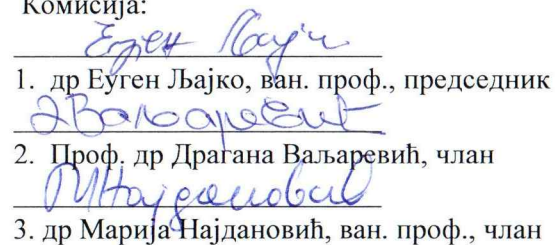 Комисија:
Еуген Љајко
1. др Еуген Љајко, ван. проф., председник
ДВаљаревић
2. Проф. др Драгана Ваљаревић, члан
МНајдановић
3. др Марија Најдановић, ван. проф., члан